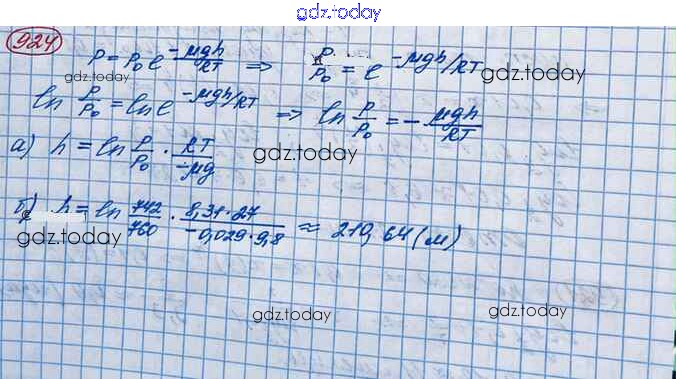 gdz.today
924
P = P₀e^(-μgh/RT) ⇒ P/P₀ = e^(-μgh/RT)
gdz.today
gdz.today
ln P/P₀ = ln e^(-μgh/RT) ⇒ ln P/P₀ = - μgh/RT
а) h = ln P/P₀ · RT/-μg
gdz.today
б) h = ln 742/760 · 8,31·27/-0,029·9,8 ≈ 210,64 (м)
gdz.today
gdz.today
gdz.today